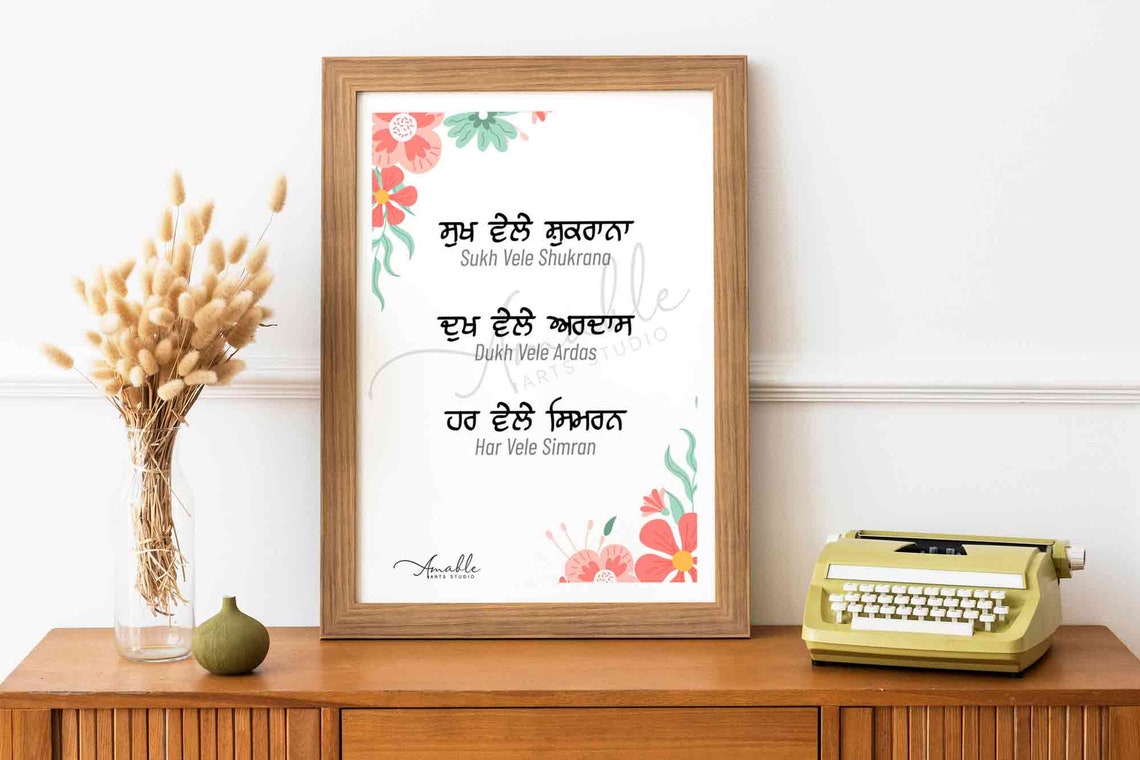 ਸੁਖ ਵੇਲੇ ਸ਼ੁਕਰਾਨਾ
Sukh Vele Shukrana
ਦੁਖ ਵੇਲੇ ਅਰਦਾਸ
Dukh Vele Ardas
ਹਰ ਵੇਲੇ ਸਿਮਰਨ
Har Vele Simran
Amable
ARTS STUDIO
Amable
ARTS STUDIO